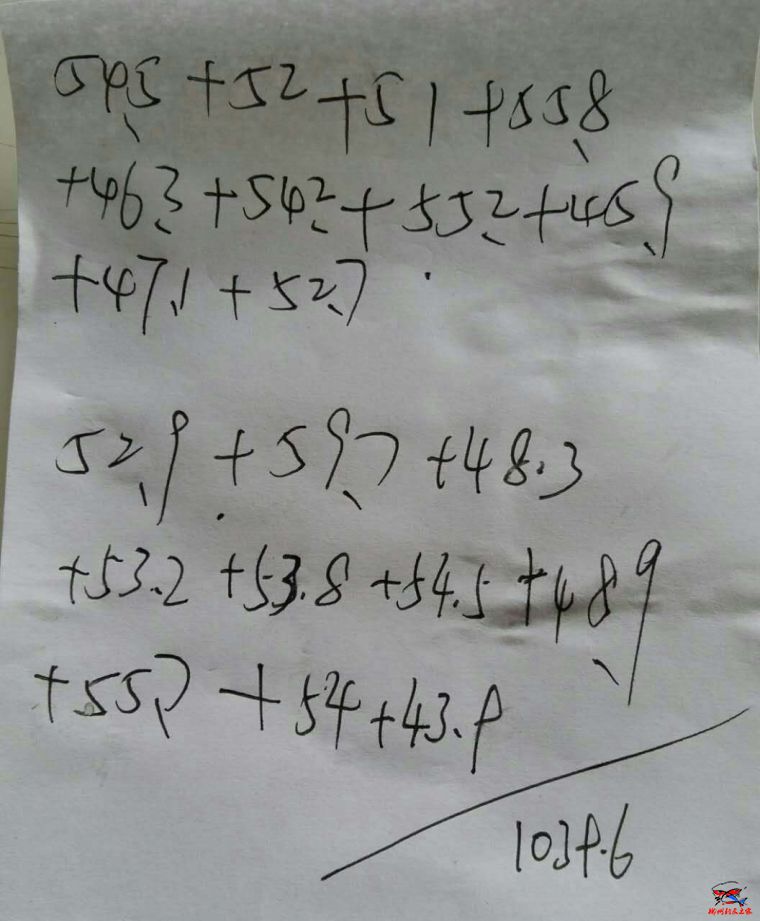 54.5+52+51+55.8
+46.3+54.2+55.2+45.9
+47.1+52.7
52.9+59.7+48.3
+53.2+53.8+54.5+48.9
+55.7+54+43.9
1039.6